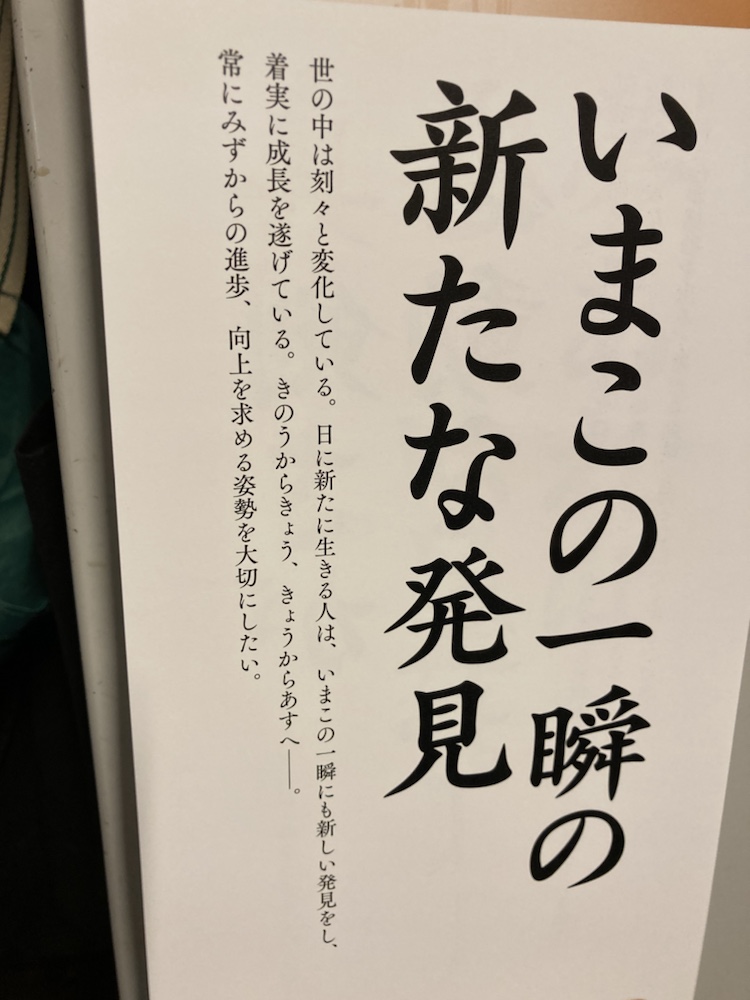 いまこの一瞬の
新たな発見
世の中は刻々と変化している。日に新たに生きる人は、いまこの一瞬にも新しい発見をし、
着実に成長を遂げている。きのうからきょう、きょうからあすへ――。
常にみずからの進歩、向上を求める姿勢を大切にしたい。